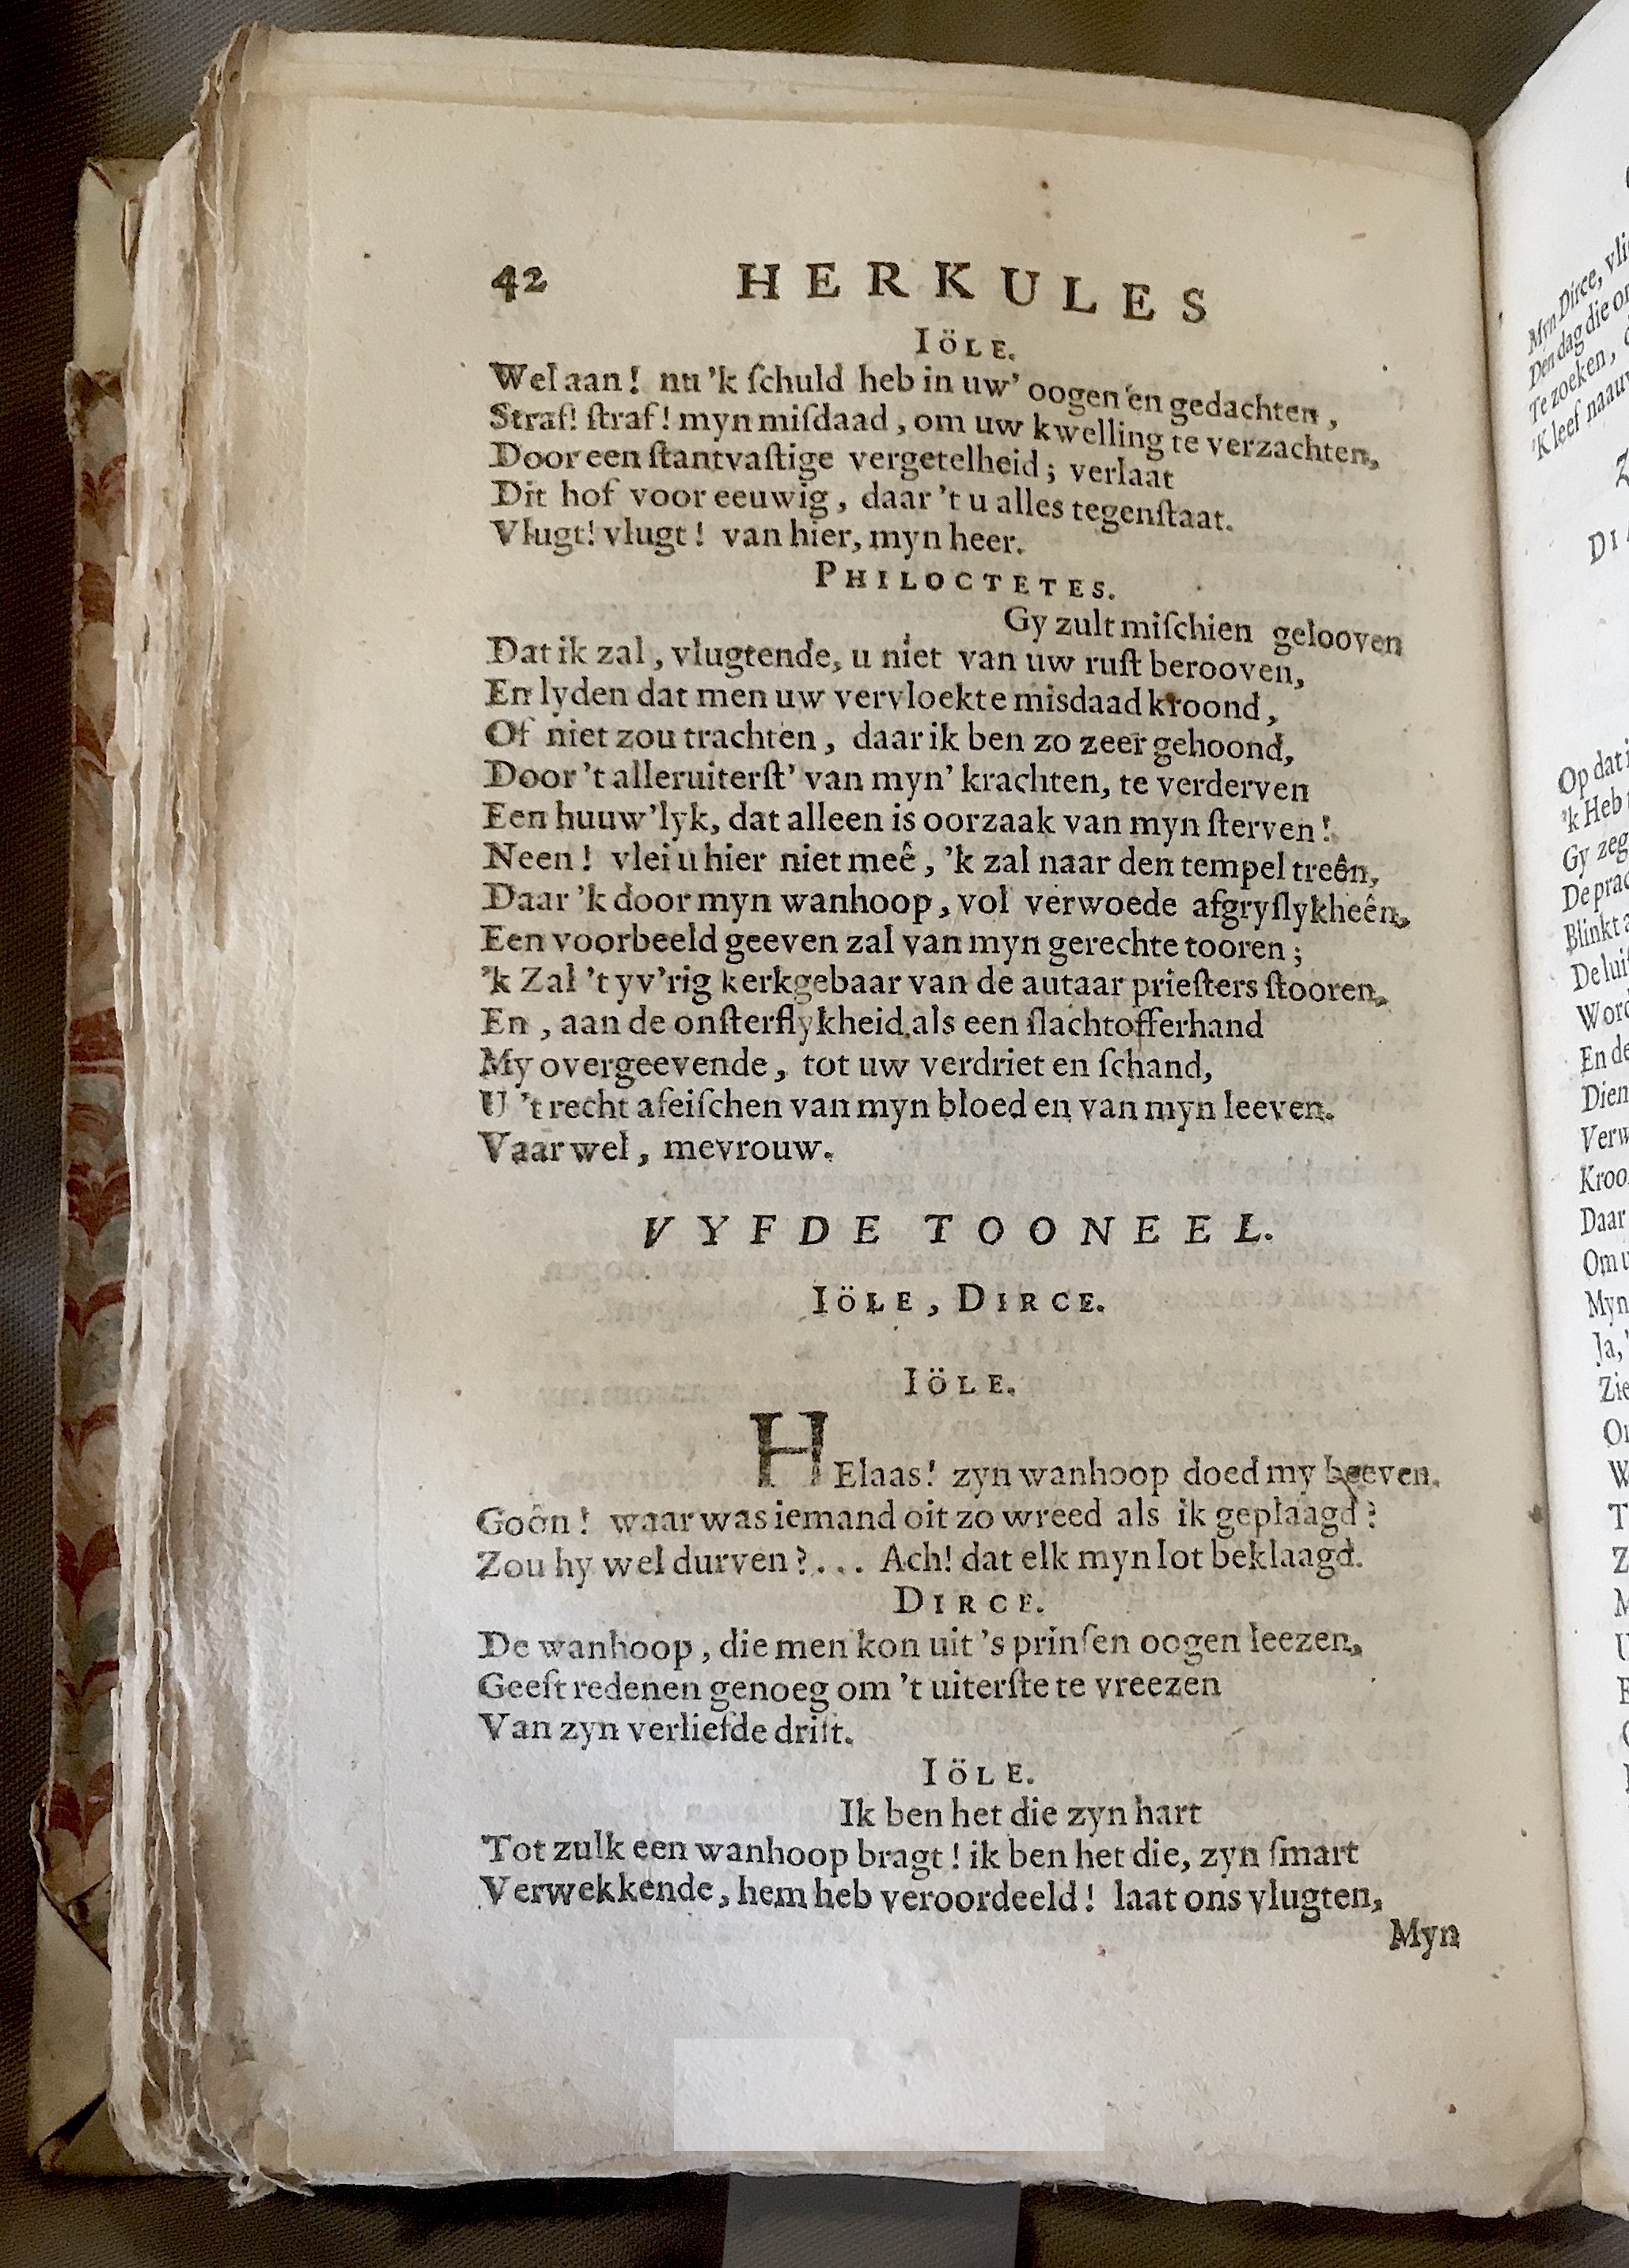 42 HERKULES
IÖLE.
Wel aan! nu 'k ſchuld heb in uw' oogen en gedachten,
Straf! ſtraf! myn miſdaad, om uw kwelling te verzachten,
Door een ſtantvaſtige vergetelheid; verlaat
Dit hof voor eeuwig, daar 't u alles tegenſtaat.
Vlugt! vlugt! van hier, myn heer.
PHILOCTETES.
Gy zult miſchien gelooven
Dat ik zal, vlugtende, u niet van uw ruſt berooven,
En lyden dat men uw vervloekte misdaad kroond,
Of niet zou trachten, daar ik ben zo zeer gehoond,
Door 't alleruiterſt' van myn' krachten, te verderven
Een huuw'lyk, dat alleen is oorzaak van myn ſterven!
Neen! vlei u hier niet meê, 'k zal naar den tempel treên,
Daar 'k door myn wanhoop, vol verwoede afgryſlykheên,
Een voorbeeld geeven zal van myn gerechte tooren;
'k Zal 't yv'rig kerkgebaar van de autaar prieſters ſtooren,
En, aan de onſterflykheid als een ſlachtofferhand
My overgeevende, tot uw verdriet en ſchand,
U 't recht afeiſchen van myn bloed en van myn leeven.
Vaar wel, mevrouw.
VYFDE TOONEEL.
IÖLE, DIRCE.
IÖLE.
HElaas! zyn wanhoop doed my beeven.
Goôn! waar was iemand oit zo wreed als ik geplaagd?
Zou hy wel durven?... Ach! dat elk myn lot beklaagd.
DIRCE.
De wanhoop, die men kon uit 's prinſen oogen leezen,
Geeft redenen genoeg om 't uiterſte te vreezen
Van zyn verliefde drift.
IÖLE.
Ik ben het die zyn hart
Tot zulk een wanhoop bragt! ik ben het die, zyn ſmart
Verwekkende, hem heb veroordeeld! laat ons vlugten,
Myn
Myn Dirce,
Den dag die
Te zoeken,
'K leef
Op dat
'k Heb
Gy
Blinkt
En de
Daar
Myn
Ja,